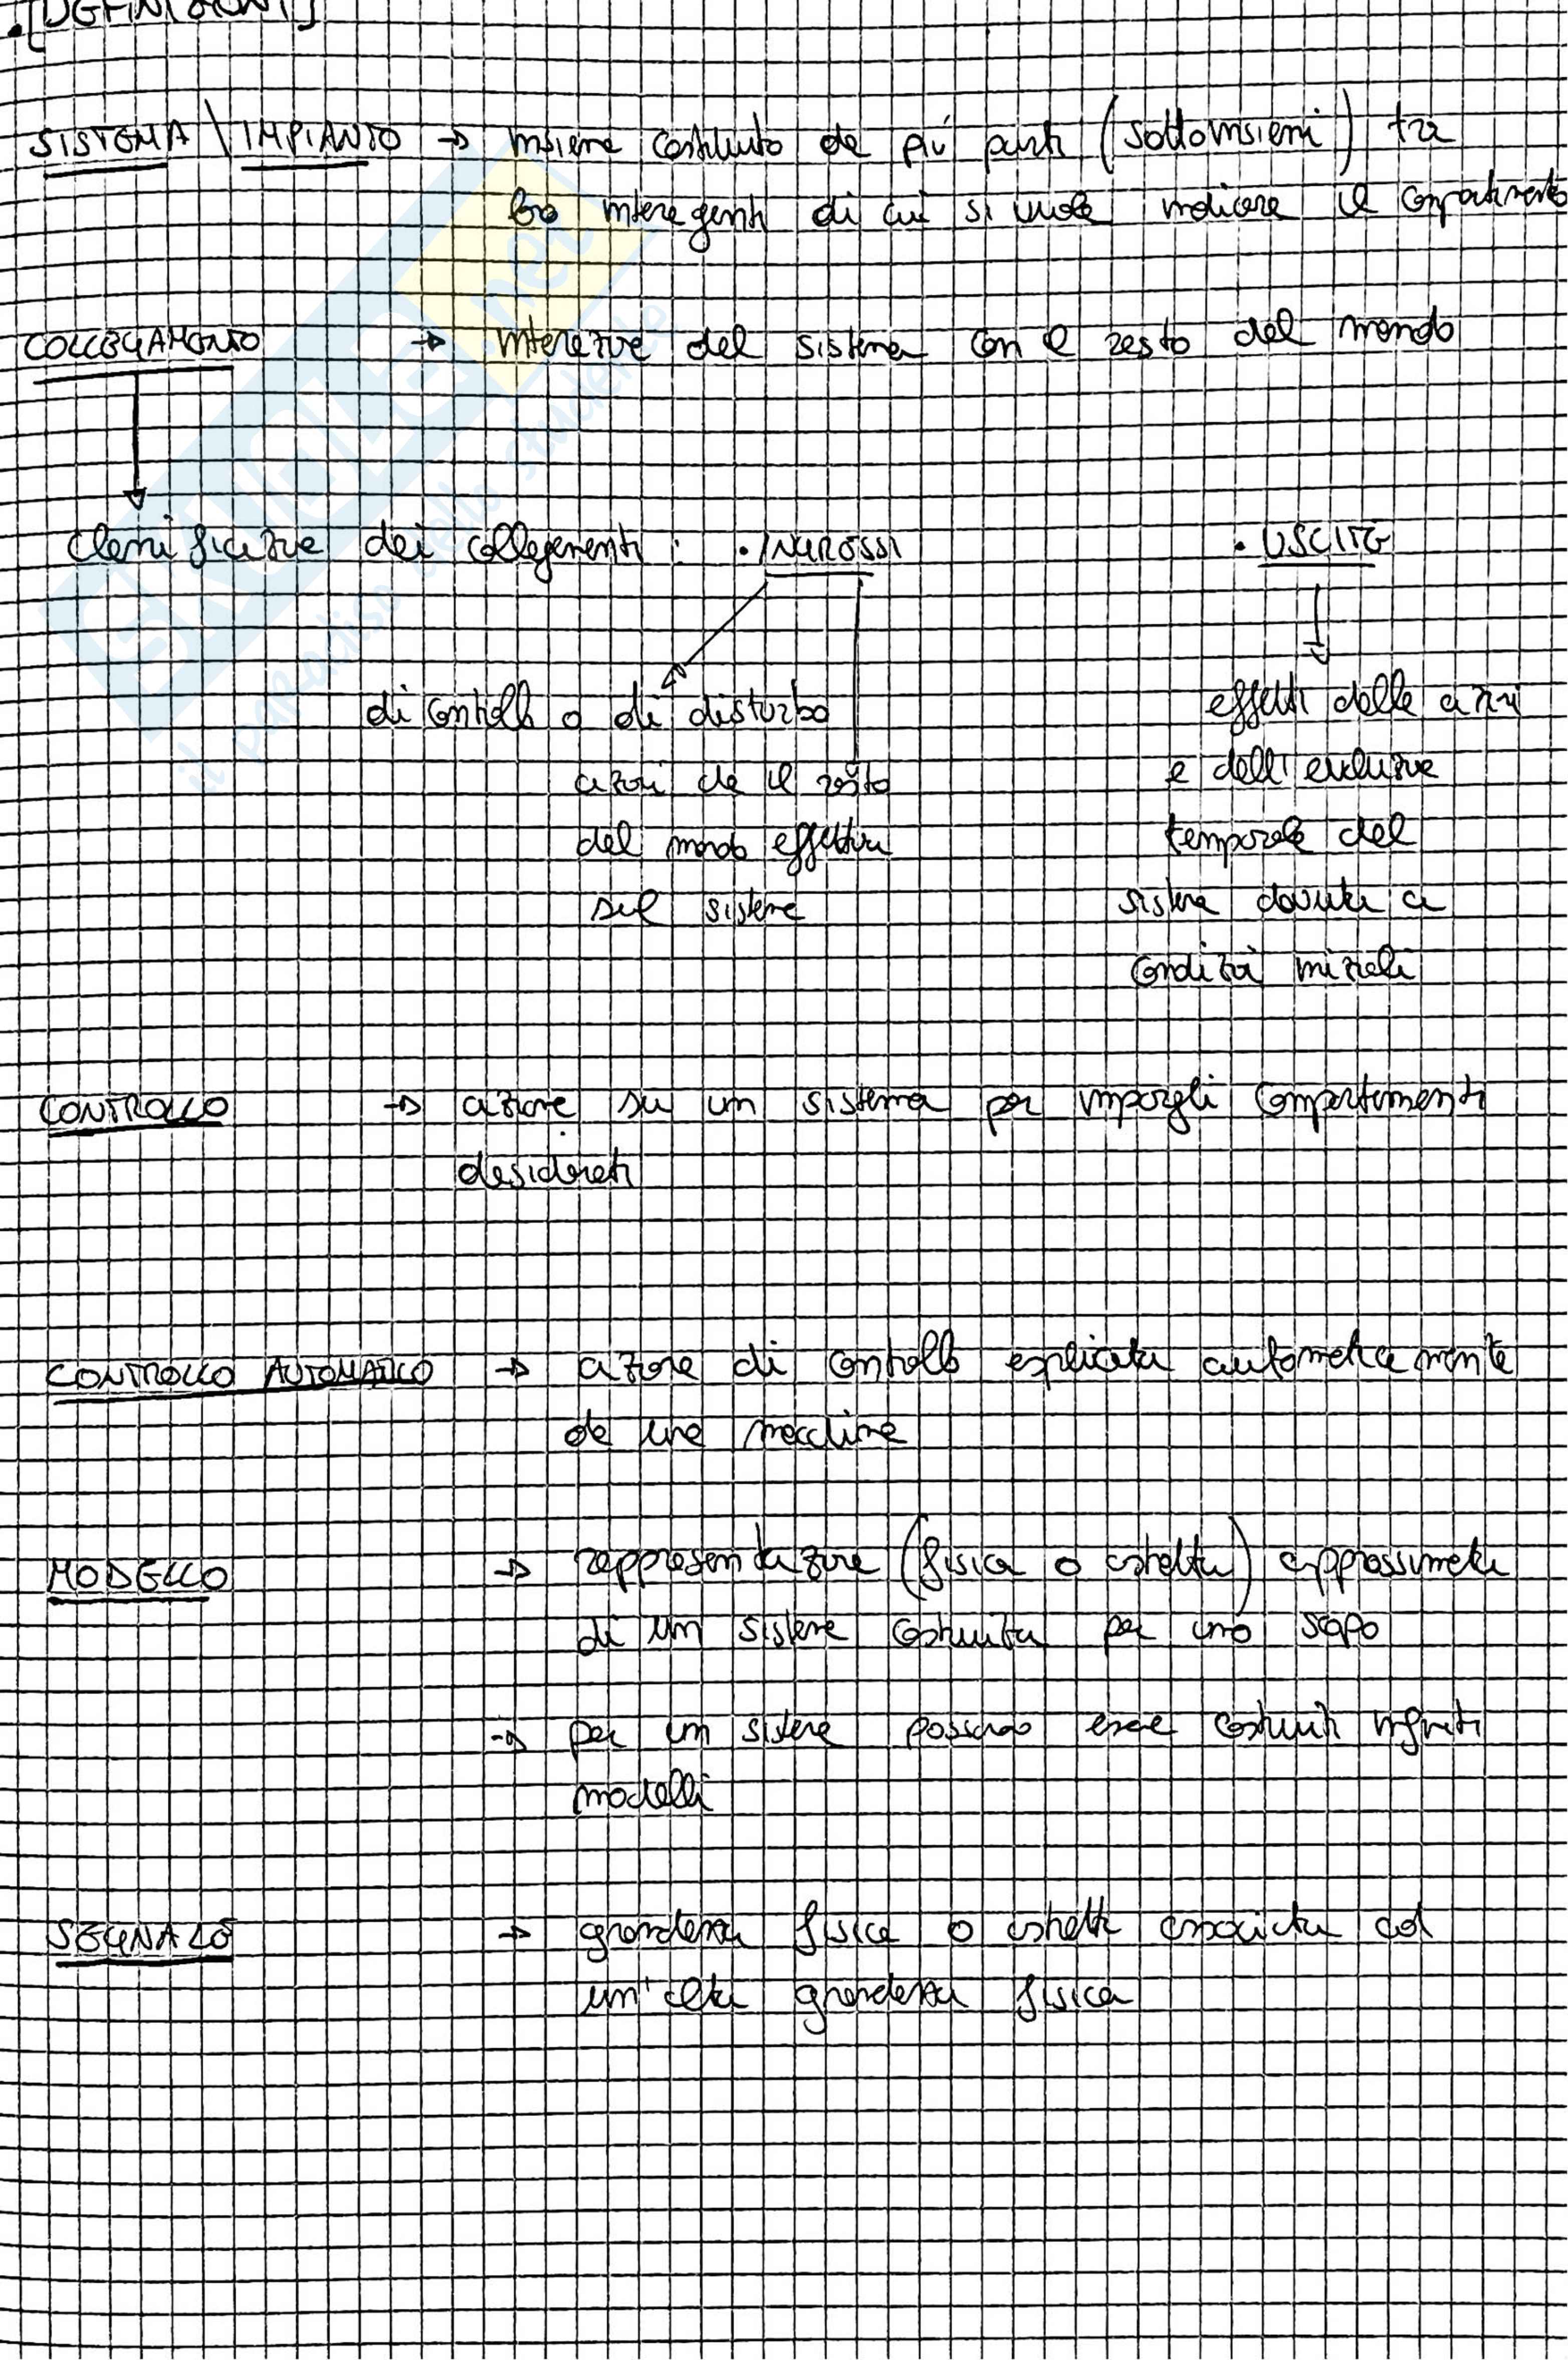 • [DEFINIZIONI]
SISTEMA \ IMPIANTO → insieme costituito da più parti (sottoinsiemi) tra
loro interagenti di cui si vuole indicare il comportamento
COLLEGAMENTO → interazione del sistema con il resto del mondo
Classificazione dei collegamenti : • INGRESSI • USCITE
di controllo o di disturbo
azioni che il resto
del mondo effettua
sul sistema
effetti delle azioni
e dell'evoluzione
temporale del
sistema dovuta a
condizioni iniziali
CONTROLLO → azione su un sistema per imporgli comportamenti
desiderati
CONTROLLO AUTOMATICO → azione di controllo esplicata automaticamente
da una macchina
MODELLO → rappresentazione (fisica o astratta) approssimata
di un sistema costruita per uno scopo
→ per un sistema possono essere costruiti infiniti
modelli
SEGNALE → grandezza fisica o astratta associata ad
un'altra grandezza fisica
SKUOLA.net
il paradiso dello studente